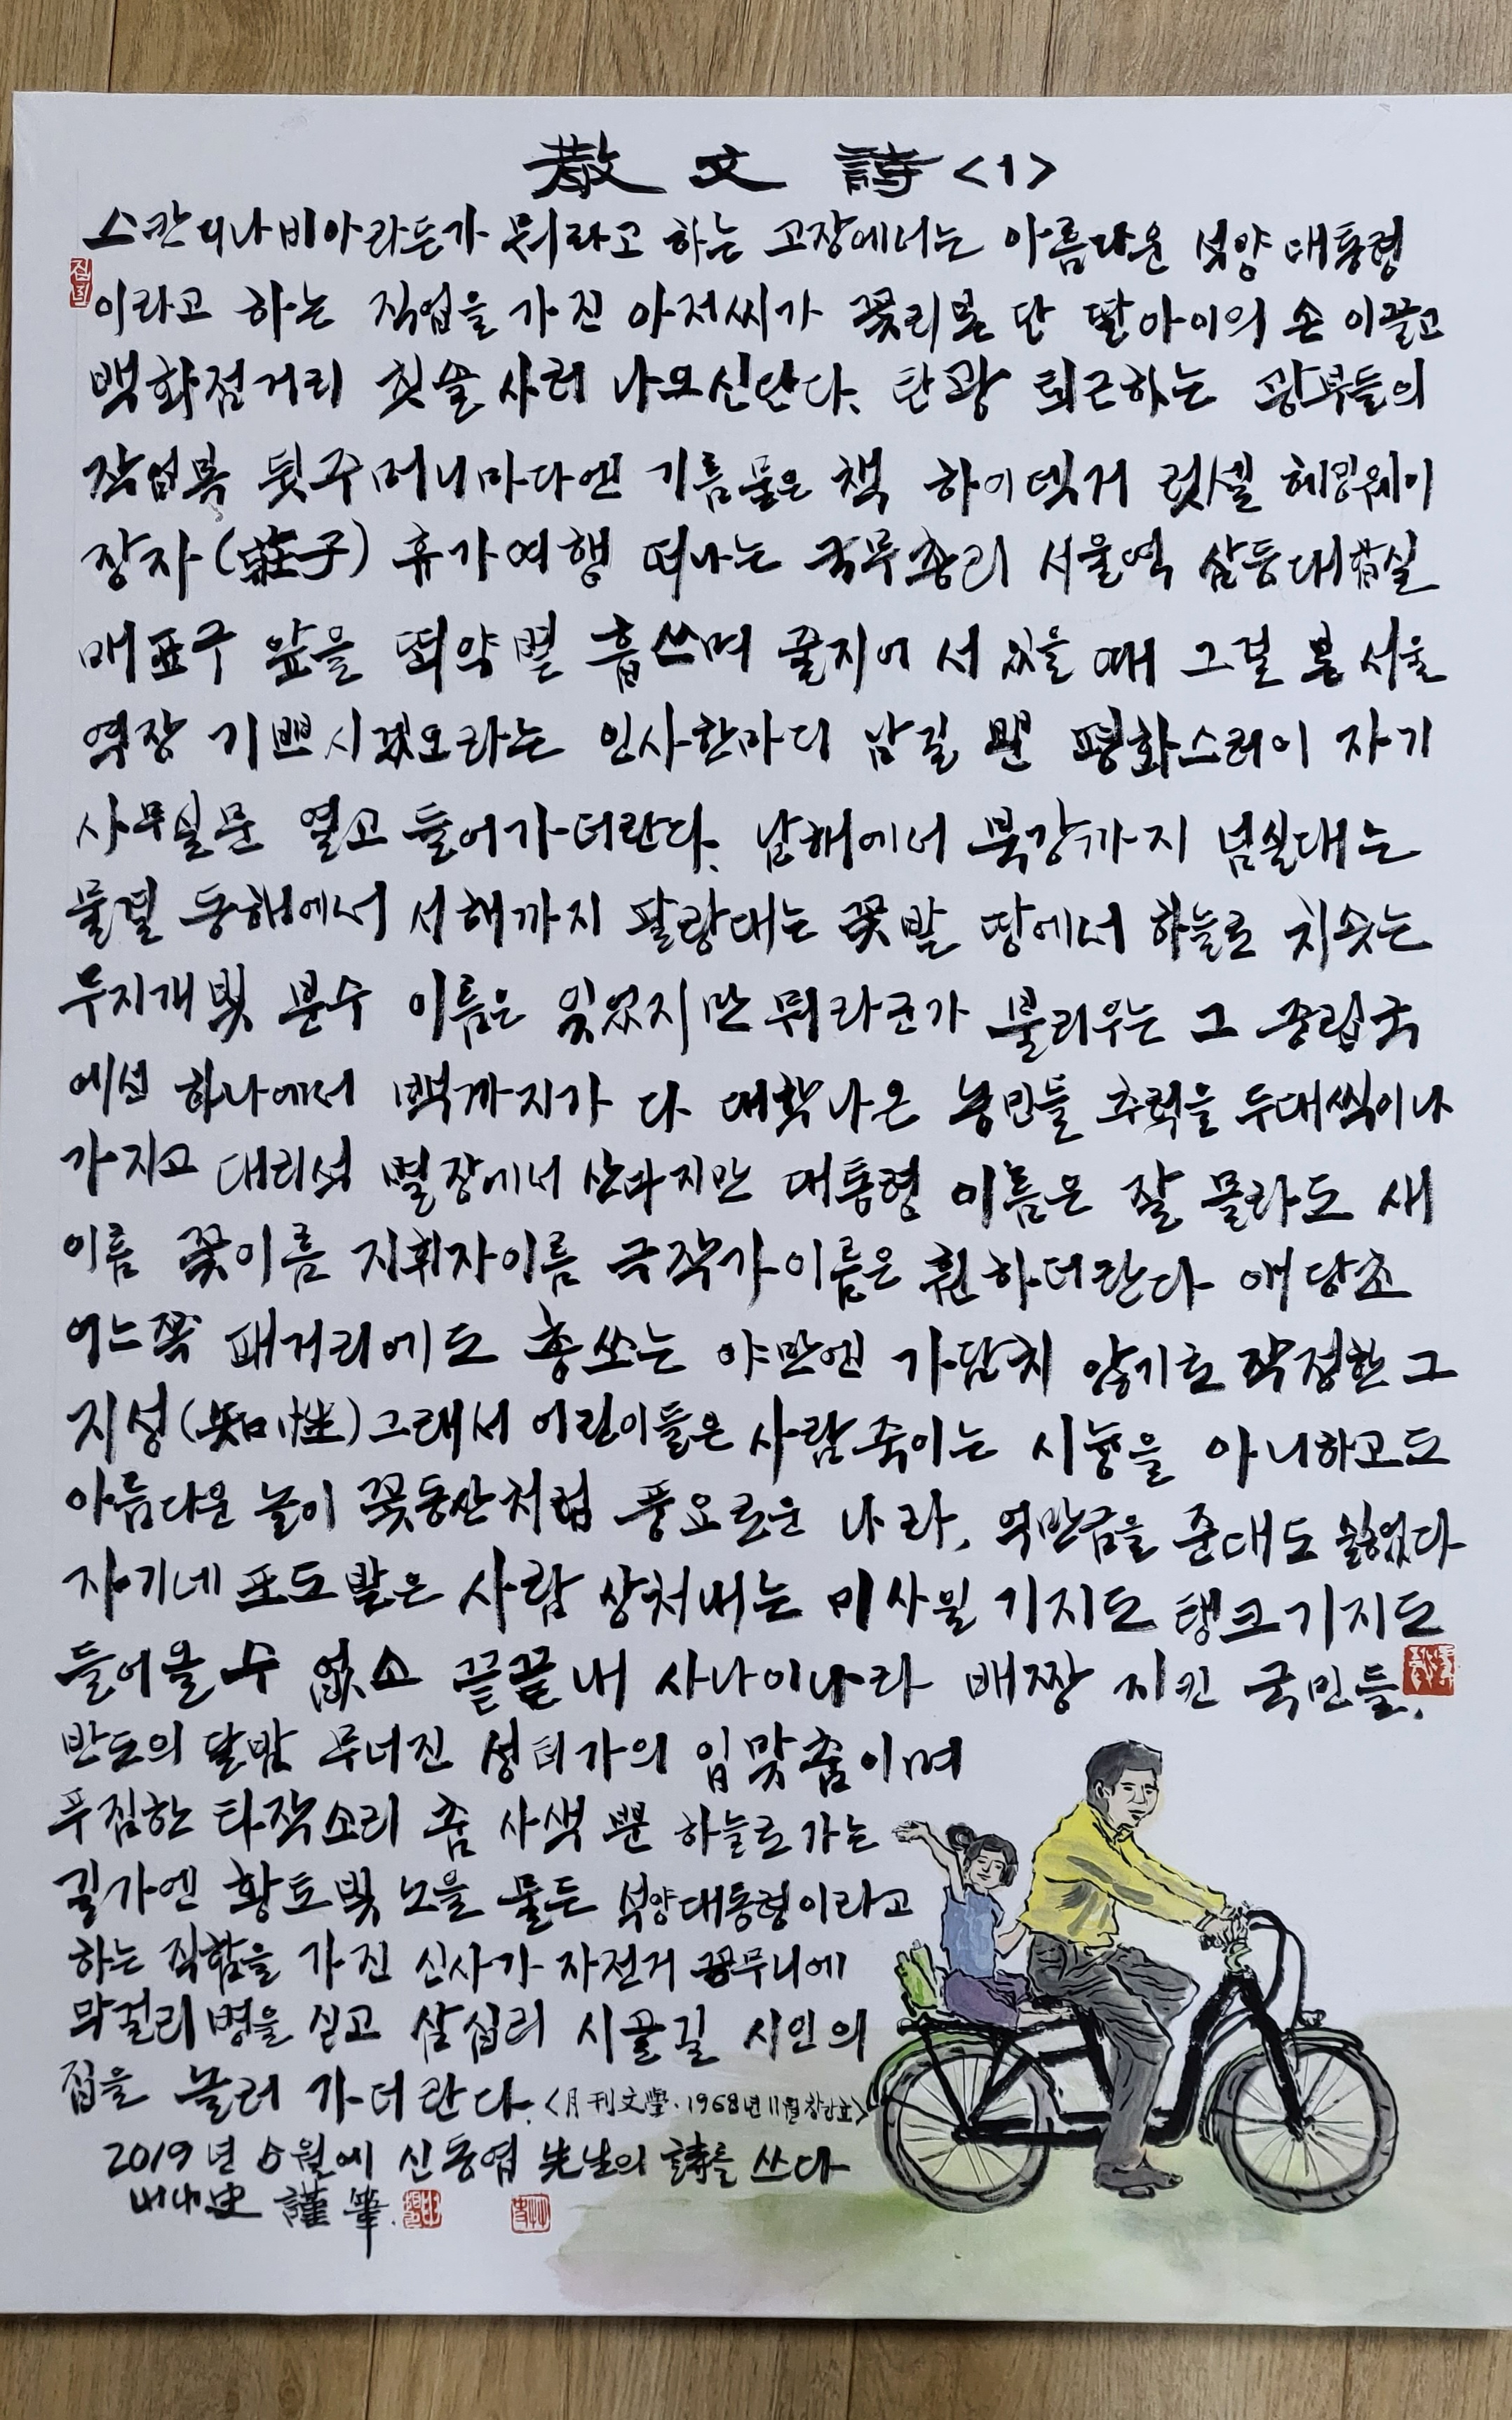 散文詩<1>
스칸디나비아라든가 뭐라고 하는 고장에서는 아름다운 석양 대통령
이라고 하는 직업을 가진 아저씨가 꽃리본 단 딸아이의 손 이끌고
백화점거리 칫솔 사러 나오신단다. 탄광 퇴근하는 광부들의
작업복 뒷주머니마다엔 기름묻은 책 하이덱거 럿셀 헤밍웨이
장자(莊子) 휴가여행 떠나는 국무총리 서울역 삼등대합실
매표구 앞을 뙤약볕 흡쓰며 줄지어 서 있을 때 그걸 본 서울
역장 기쁘시겠오라는 인사한마디 남길 뿐 평화스러이 자기
사무실문 열고 들어가더란다. 남해에서 북강까지 넘실대는
물결 동해에서 서해까지 팔랑대는 꽃밭 땅에서 하늘로 치솟는
무지개빛 분수 이름은 잊었지만 뭐라군가 불리우는 그 중립국
에선 하나에서 백까지가 다 대학나온 농민들 추럭을 두대씩이나
가지고 대리석 별장에서 산다지만 대통령 이름은 잘 몰라도 새
이름 꽃이름 지휘자이름 극작가이름은 훤하더란다 애당초
어느쪽 패거리에도 총쏘는 야만엔 가담치 않기로 작정한 그
지성(知性)그래서 어린이들은 사람죽이는 시늉을 아니하고도
아름다운 놀이 꽃동산처럼 풍요로운 나라, 억만금을 준대도 싫었다
자기네 포도밭은 사람 상처내는 미사일 기지도 탱크기지도
들어올 수 없소 끝끝내 사나이나라 배짱 지킨 국민들,
반도의 달밤 무너진 성터가의 입맞춤이며
푸짐한 타작소리 춤 사색 뿐 하늘로 가는
길가엔 황토빛 노을 물든 석양대통령이라고
하는 직함을 가진 신사가 자전거 꽁무니에
막걸리병을 싣고 삼십리 시골길 시인의
집을 놀러 가더란다. <月刊文學·1968년 11월 창간호>
2019년 5월에 신동엽 先生의 詩를 쓰다
謹筆.